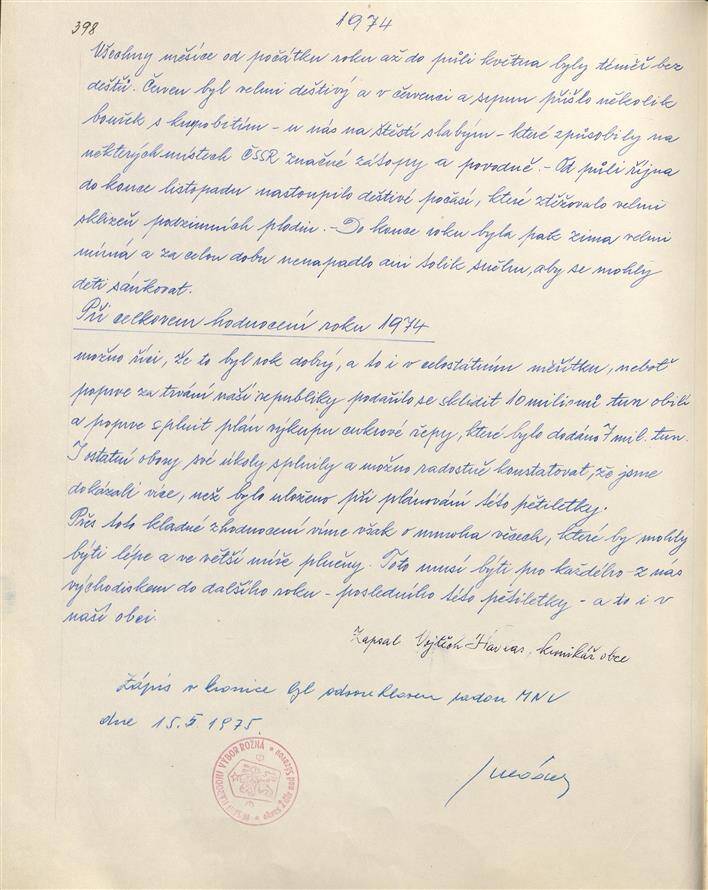 398
1974
Všechny měsíce od počátku roku až do půli května byly téměř bez
dešťů. Červen byl velmi deštivý a v červenci a srpnu přišlo několik
bouřek s krupobitím - u nás na štěstí slabým - které způsobily na
některých místech ČSSR značné zátopy a povodně. - Od půli října
do konce listopadu nastoupilo deštivé počasí, které ztěžovalo velmi
sklizeň podzimních plodin. - Do konce roku byla pak zima velmi
mírná a za celou dobu nenapadlo ani tolik sněhu, aby se mohly
děti sáňkovat.
Při celkovém hodnocení roku 1974
možno říci, že to byl rok dobrý, a to i v celostátním měřítku, neboť
poprve za trvání naší republiky podařilo se sklidit 10 milionů tun obilí
a poprve splnit plán výkupu cukrové řepy, které bylo dodáno 7 mil. tun.
I ostatní obory své úkoly splnily a možno radostně konstatovat, že jsme
dokázali více, než bylo uloženo při plánování této pětiletky.
Přes toto kladné zhodnocení víme však o mnoha věcech, které by mohly
býti lépe a ve větší míře plněny. Toto musí býti pro každého z nás
východiskem do dalšího roku - posledního této pětiletky - a to i v
naší obci.
Zapsal Vojtěch kronikář obce
Zápis v kronice byl odsouhlasen radou MNV
dne 15. 1975.
MÍSTNÍ NÁRODNÍ VÝBOR ROŽNÁ * okres Žďár nad Sázavou *